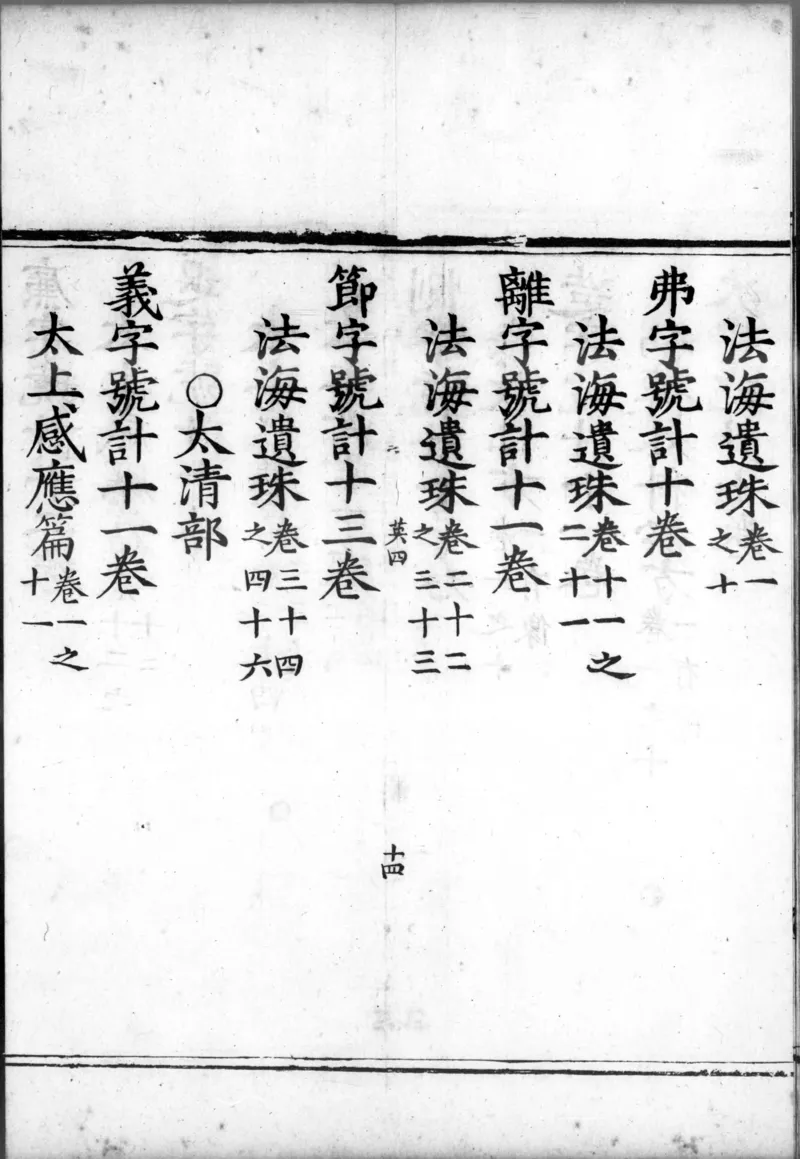 法海遺珠卷一之十
弗字號計十卷
法海遺珠卷十一之二十一
離字號計十一卷
法海遺珠卷二十二之三十三
英四
十四
節字號計十三卷
法海遺珠卷三十四之四十六
○太清部
義字號計十一卷
太上感應篇卷一之十一